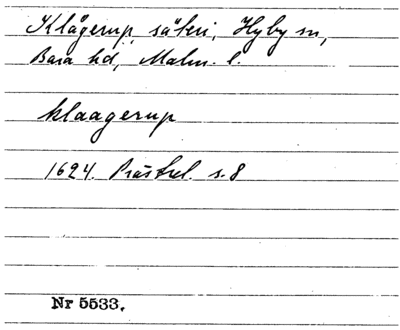 Klågerup, säteri, Hyby sn,
Bara hd, Malm. l.
klaagerup
1624. Prästrel. s. 8
Nr 5533.